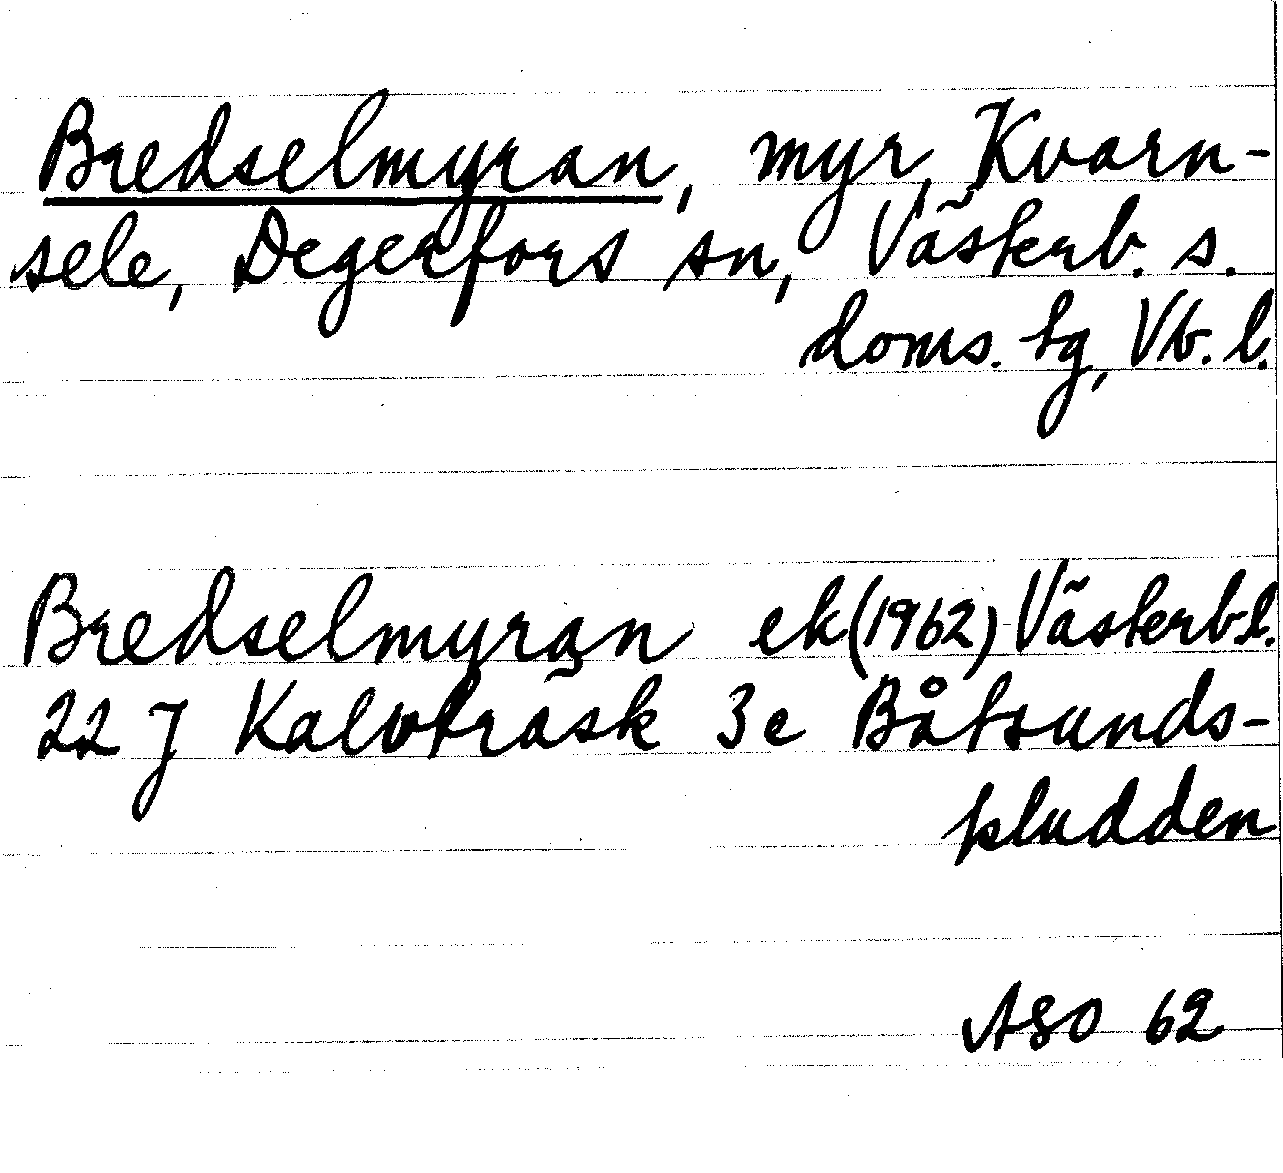 Bredselmyran, myr, Kvarn-
sele, Degerfors sn, Västerb. s.
doms. tg, Vb. l.
Bredselmyran ek (1962) Västerb.l.
22 J Kalvträsk 3c Båtsunds-
kludden
ASO 62